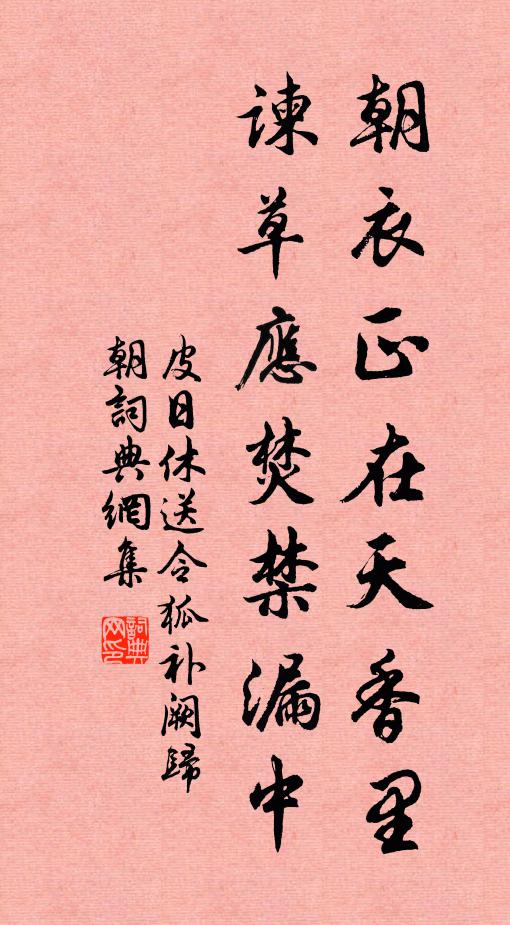 朝衣正在天香里
諫草應焚禁漏中
皮日休送令狐补阙歸
朝詞典網集
詞典
网印